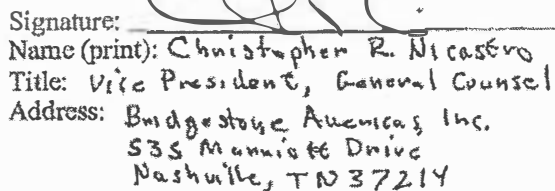 Signature:
Name (print): Christopher R. Nicastro
Title: Vice President, General Counsel
Address: Bridgestone Americas, Inc.
535 Marriott Drive
Nashville, TN 37214